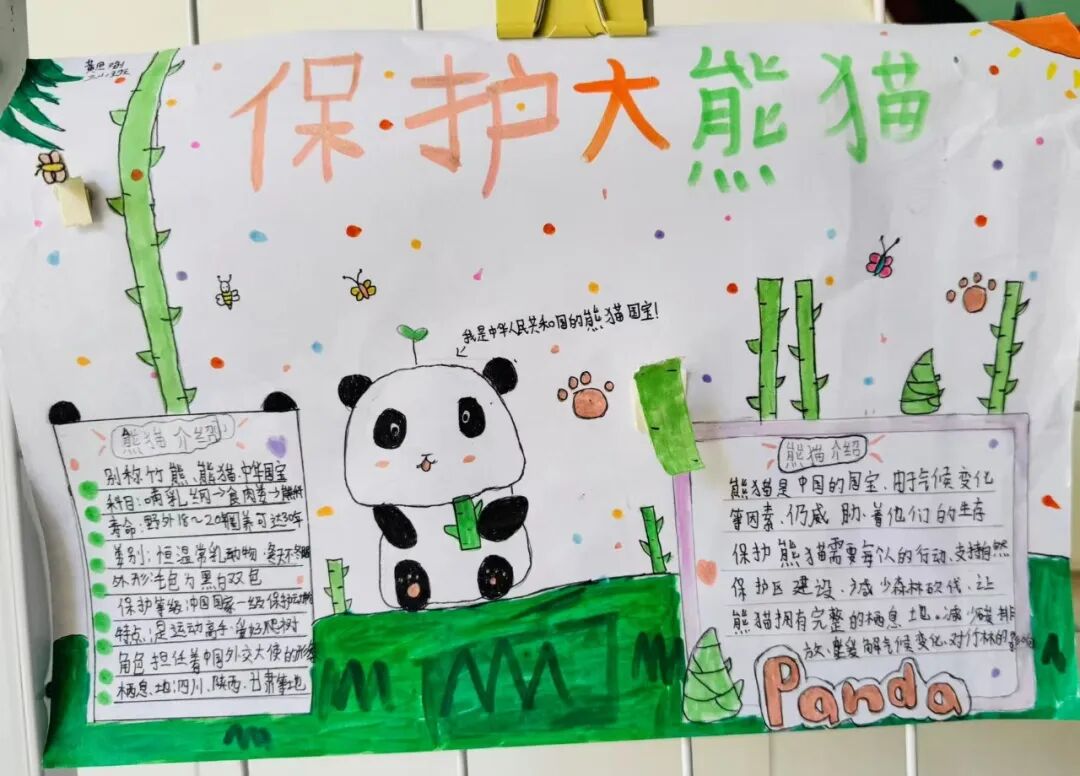 保护大熊猫
我是中华人民共和国的熊猫国宝!
熊猫介绍
别称:竹熊、熊猫、中华国宝
科目:哺乳纲→食肉类→熊科
寿命:野外18~20年圈养可达30年
类别:恒温常乳动物
外形:毛色为黑白双色
保护等级:中国国家一级保护动物
特点:是运动高手、爱好爬树
角色:担任着中国外交大使的形象
栖息地:四川、陕西、甘肃等地
熊猫介绍
熊猫是中国的国宝、由于气候变化
等因素、仍威胁着他们的生存
保护熊猫需要每个人的行动、支持自然
保护区建设、减少森林砍伐、让
熊猫拥有完整的栖息地、减少碳排
放、缓解气候变化、对竹林的影响
Panda